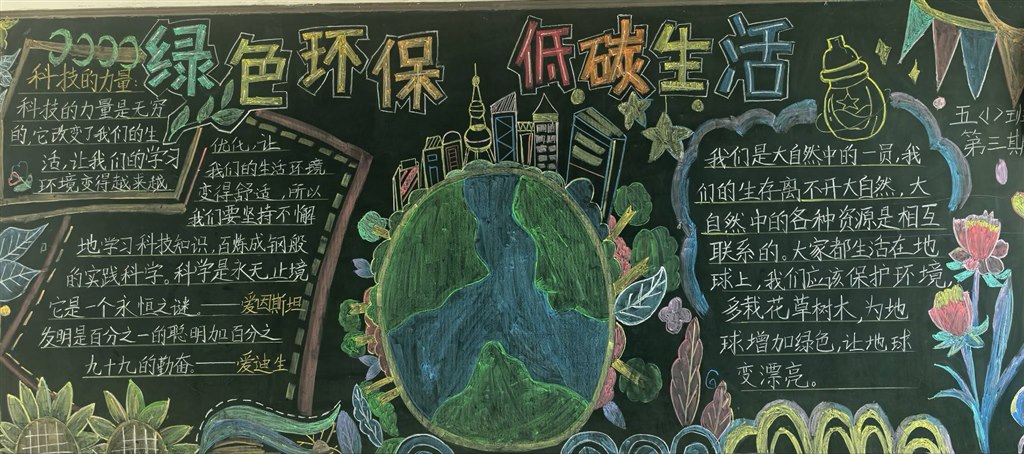 绿色环保 低碳生活
科技的力量:
科技的力量是无穷
的,它改变了我们的生
活,让我们的学习
环境变得越来越
优化,让
我们的生活环境
变得舒适,所以
我们要坚持不懈
地学习科技知识,百炼成钢般
的实践科学。科学是永无止境
它是一个永恒之谜。——爱因斯坦
发明是百分之一的聪明加百分之
九十九的勤奋。——爱迪生
五〈1〉班
第三期
我们是大自然中的一员,我
们的生存离不开大自然,大
自然中的各种资源是相互
联系的。大家都生活在地
球上,我们应该保护环境,
多栽花草树木,为地
球增加绿色,让地球
变漂亮。